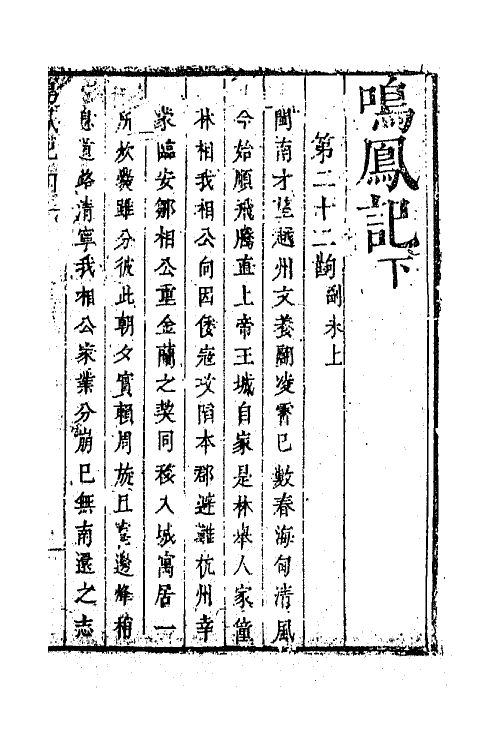 鳴鳳記下
第二十二齣 副末上
閩南才望越州文養翮凌霄已數春海甸清風
今始順飛騰直上帝王城自家是林舉人家僮
林相我相公向因倭寇攻陷本郡避難杭州幸
家臨安鄒相公重金蘭之契同移入城寓居一
所炊爨雖分彼此朝夕實賴周旋且喜邊烽稍
息道路清寧我相公家業分崩已無南還之志